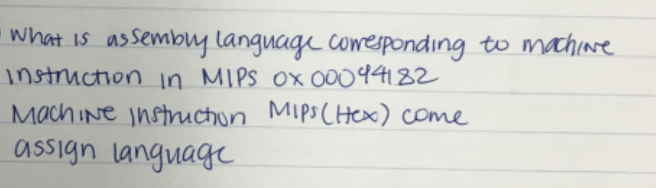 What is assembly language corresponding to machine
instruction in MIPS 0x00094182
Machine Instruction MIPS (Hex) come
assign language